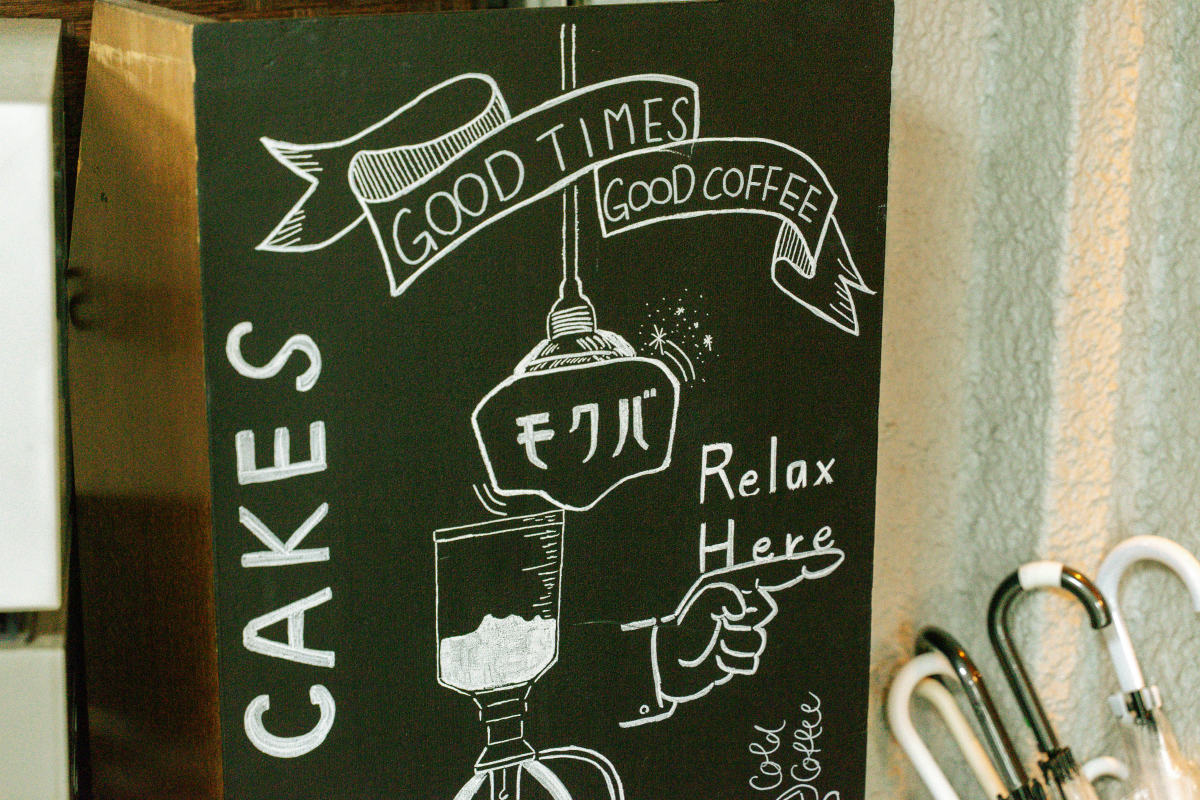 GOOD TIMES
GOOD COFFEE
モクバ
CAKES
Relax
Here
Cold
Coffee